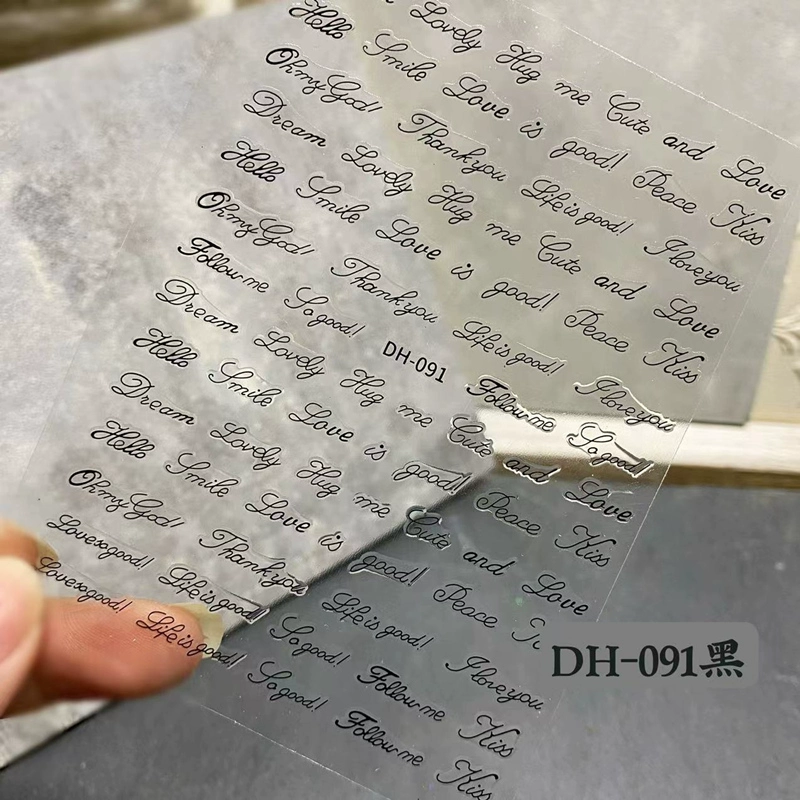 Lovely Hug me Cute and Love
Hello Smile Love is good! Peace Kiss
Ohmy God! Thank you Life is good! I love you
Dream Lovely Hug me Cute and Love
Hello Smile Love is good! Peace Kiss
Ohmy God! Thank you Life is good! I love you
Follow me So good! DH-091 Follow me So good!
Dream Lovely Hug me Cute and Love
Hello Smile Love is good! Peace Kiss
Dream Lovely Hug me Cute and Love
Hello Smile Love is good! Peace
Ohmy God! Thank you Life is good! I love you
Love so good! Life is good! So good! Follow me Kiss
Love so good! Life is good! So good! Follow me Kiss
DH-091黑